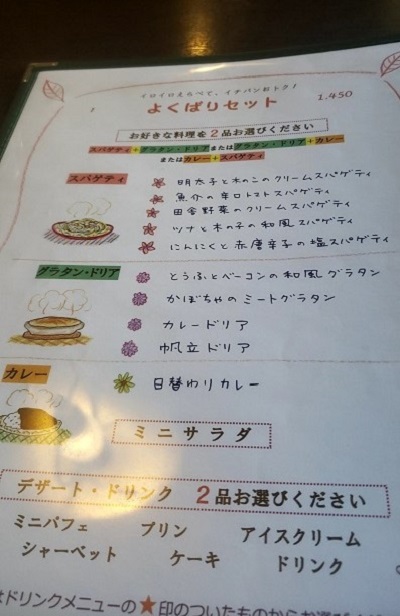 イロイロえらべて、イチバンおトク!
よくばりセット 1,450
お好きな料理を2品お選びください
スパゲティ+グラタン・ドリアまたはグラタン・ドリア+カレー
またはカレー+スパゲティ
スパゲティ
明太子と木のこのクリームスパゲティ
魚介の辛口トマトスパゲティ
田舎野菜のクリームスパゲティ
ツナと木の子の和風スパゲティ
にんにくと赤唐辛子の塩スパゲティ
グラタン・ドリア
とうふとベーコンの和風グラタン
かぼちゃのミートグラタン
カレードリア
帆立ドリア
カレー
日替わりカレー
ミニサラダ
デザート・ドリンク 2品お選びください
ミニパフェ プリン アイスクリーム
シャーベット ケーキ ドリンク
はドリンクメニューの★印のついたものからお選び